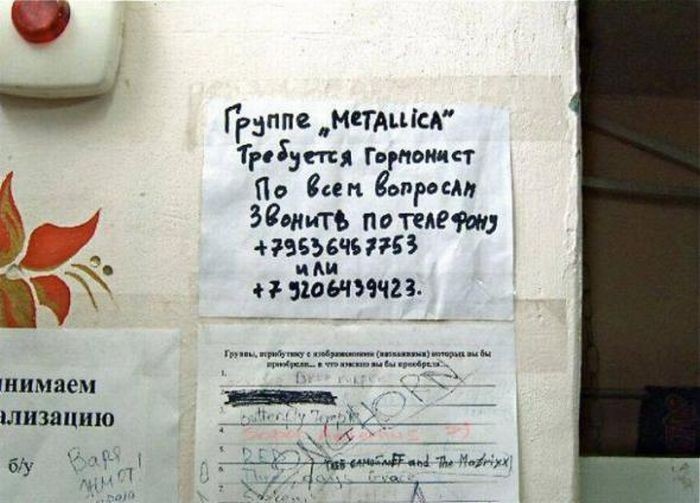 Группе „МЕТALLiCA"
Требуется Гормонист
По всем вопросам
Звонить по телефону
+79536457753
или
+79206439423.
Группы, атрибутику с изображениями (названиями) которых вы бы
приобрели... и что именно вы бы приобрели...
1.
2.
3. Butterfly Temple
4.
5.
6. and The Matrixx
7. Three days Grace
KORN
нимаем
ализацию
б/у
Варя
ЖМОТ!